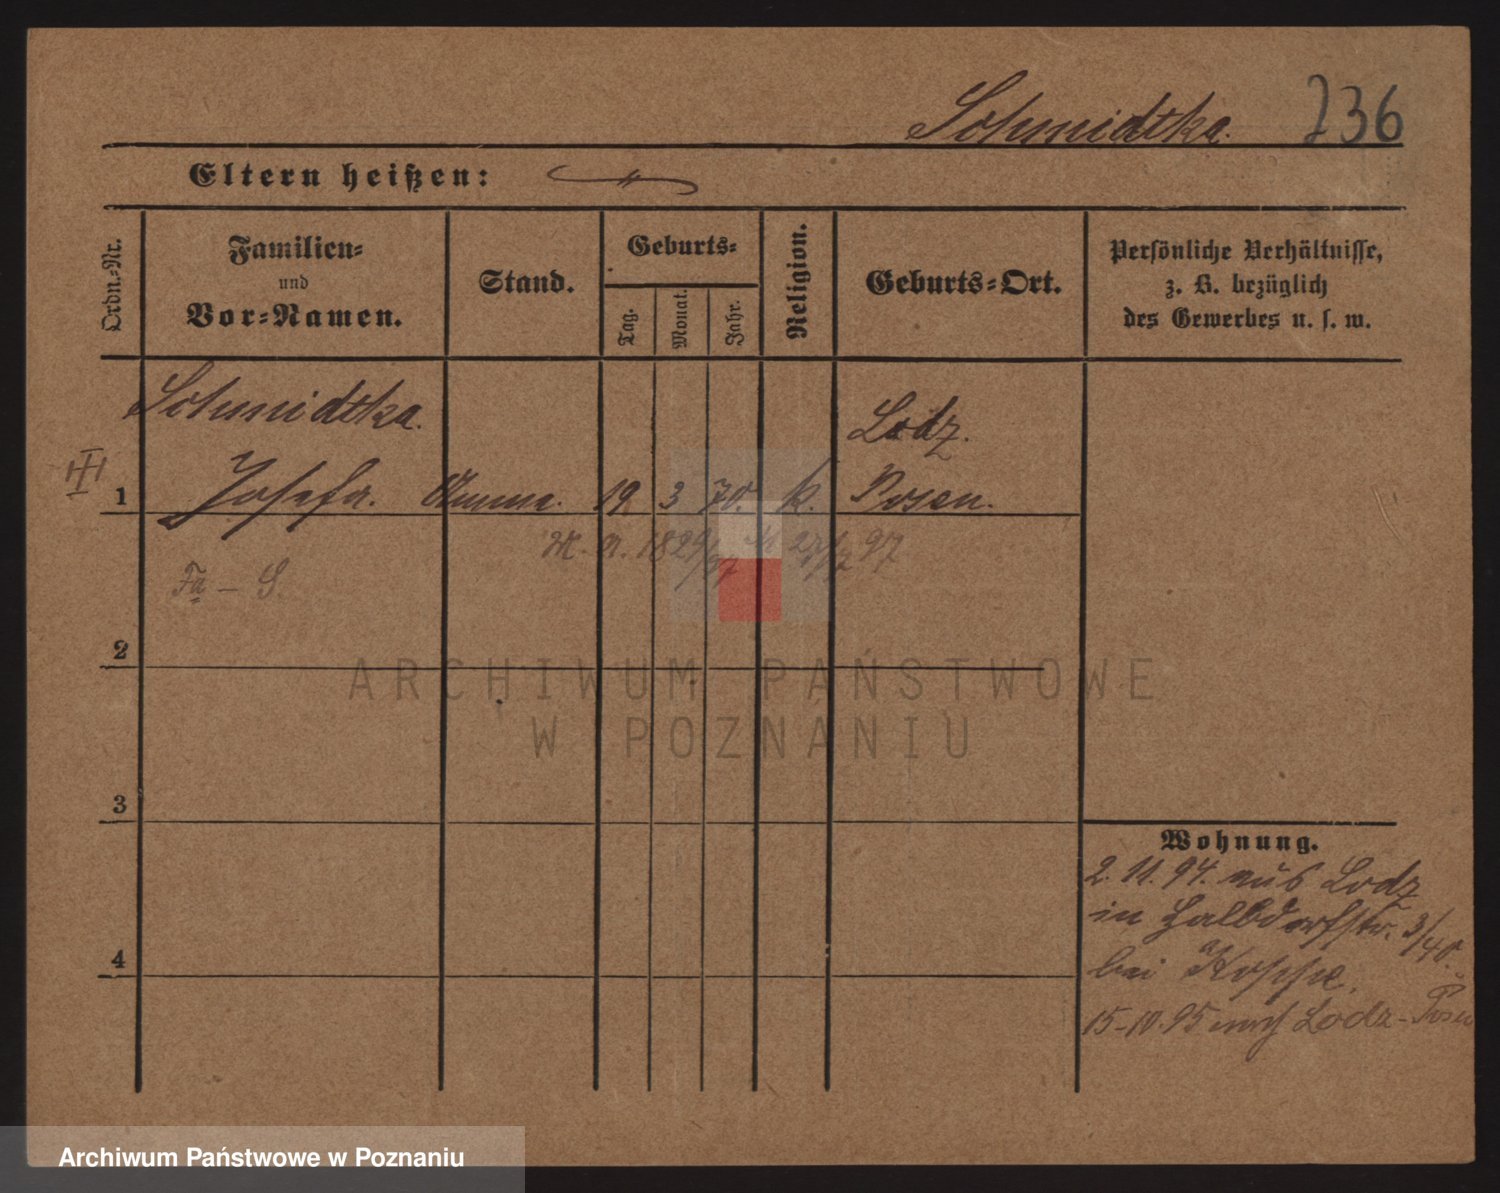 Schmidtka. 736
Eltern heißen:
Ordn.=Nr.
Familien=
und
Vor=Namen.
Stand.
Geburts=
Tag.
Monat.
Jahr.
Religion.
Geburts=Ort.
Persönliche Verhältnisse,
z. B. bezüglich
des Gewerbes u. s. w.
Schmidtka.
Lodz.
III
1 Josefa. Amme. 19 3 70. k. Posen.
Fa - S.
2
ARCHIWUM PAŃSTWOWE
W POZNANIU
3
Wohnung.
2. 11. 94. aus Lodz
in Halbdorfstr. 3/40.
bei
4
15-10.95 nach Lodz - Posen
Archiwum Państwowe w Poznaniu